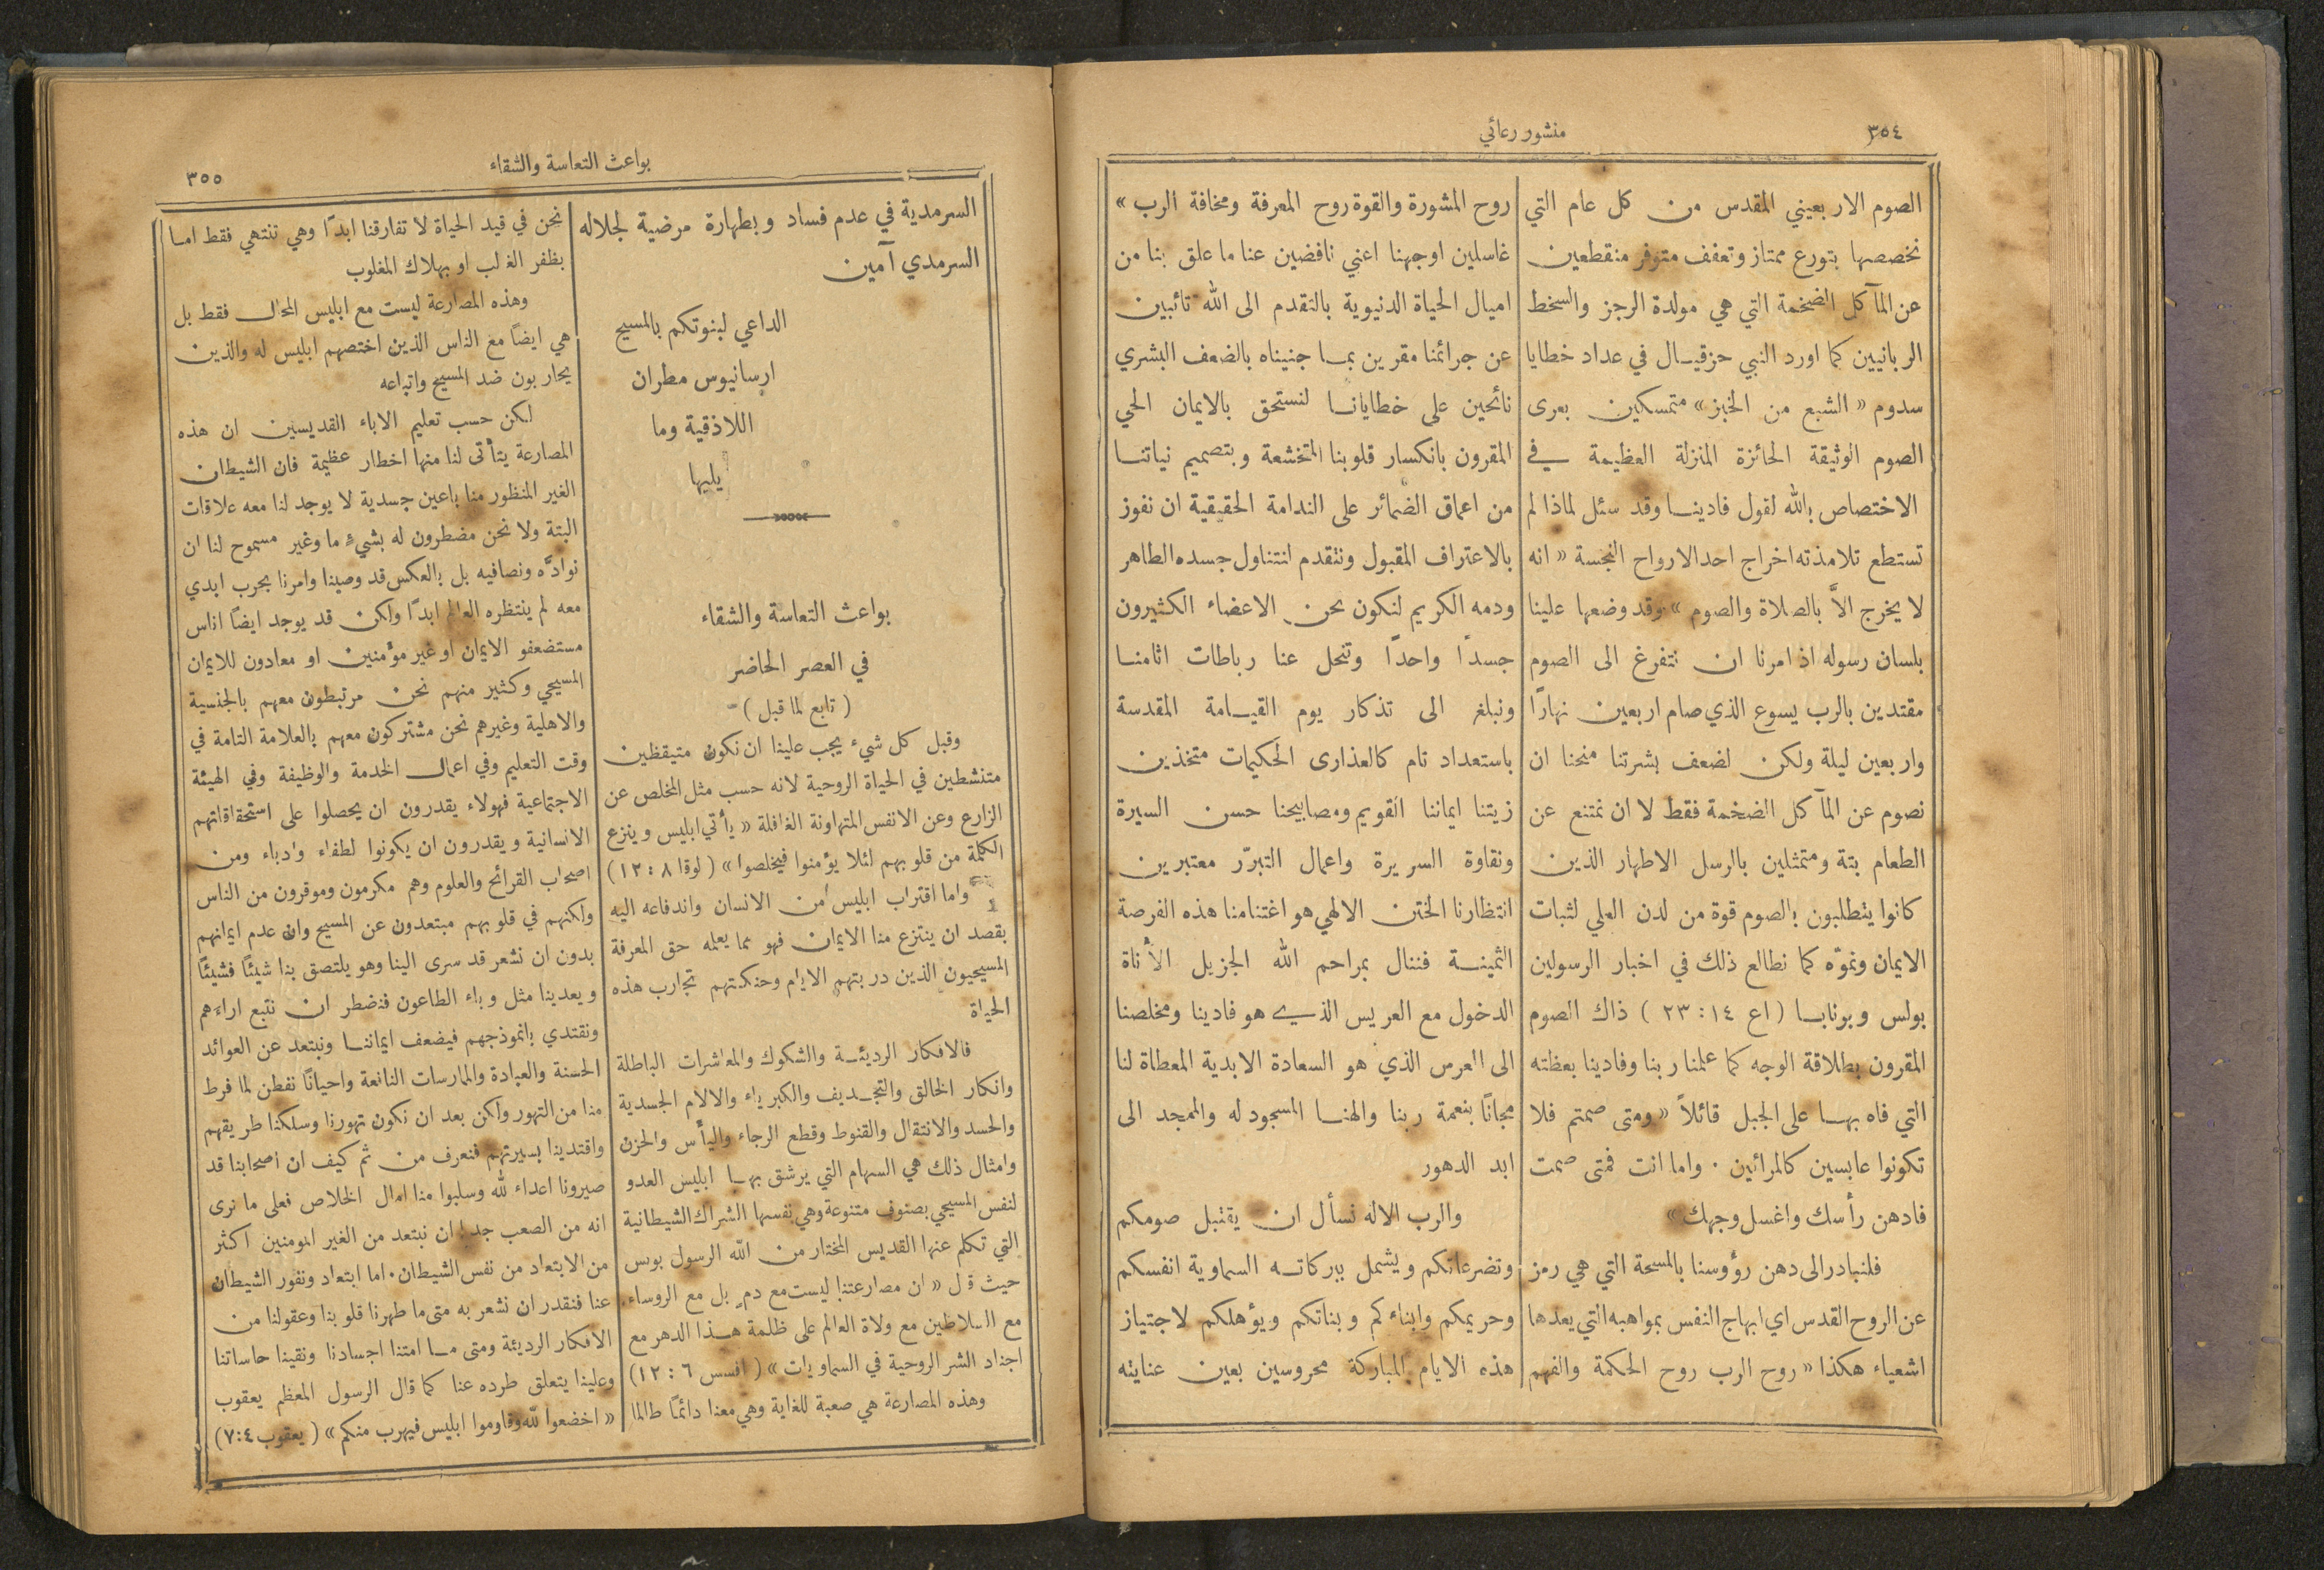 ٣٥٤
منشور رعائي
الصوم الاربعيني المقدس من كل عام التي
نخصصها بتورع ممتاز وتعفف متوفر منقطعين
عن المآكل الضخمة التي هي مولدة الرجز والسخط
الربانيين كما اورد النبي حزقيال في عداد خطايا
سدوم « الشبع من الخبز » متمسكين بعرى
الصوم الوثيقة الحائزة المنزلة العظيمة في
الاختصاص بالله لقول فادينا وقد سئل لماذا لم
تستطع تلامذته اخراج احد الارواح النجسة « انه
لا يخرج الاَّ بالصلاة والصوم » وقد وضعها علينا
بلسان رسوله اذ امرنا ان نتفرغ الى الصوم
مقتدين بالرب يسوع الذي صام اربعين نهارًا
واربعين ليلة ولكن لضعف بشرتنا منحنا ان
نصوم عن المآكل الضخمة فقط لا ان نمتنع عن
الطعام بتة ومتمثلين بالرسل الاطهار الذين
كانوا يتطلبون بالصوم قوة من لدن العلي لثبات
الايمان ونموّه كما نطالع ذلك في اخبار الرسولين
بولس وبرنابا ( اع ١٤ : ٢٣ ) ذاك الصوم
المقرون بطلاقة الوجه كما علمنا ربنا وفادينا بعظته
التي فاه بها على الجبل قائلاً « ومتى صمتم فلا
تكونوا عابسين كالمرائين ٠ واما انت فمتى صمت
فادهن رأسك واغسل وجهك »
فلنبادر الى دهن رؤوسنا بالمسحة التي هي رمز
عن الروح القدس اي ابهاج النفس بمواهبه التي يعدها
اشعياء هكذا « روح الرب روح الحكمة والفهم
روح المشورة والقوة روح المعرفة ومخافة الرب »
غاسلين اوجهنا اعني نافضين عنا ما علق بنا من
اميال الحياة الدنيوية بالتقدم الى الله تائبين
عن جرائمنا مقرين بما جنيناه بالضعف البشري
نائحين على خطايانا لنستحق بالايمان الحي
المقرون بانكسار قلوبنا المتخشعة وبتصميم نياتنا
من اعماق الضمائر على الندامة الحقيقية ان نفوز
بالاعتراف المقبول ونتقدم لنتناول جسده الطاهر
ودمه الكريم لنكون نحن الاعضاء الكثيرون
جسدًا واحدًا وتنحل عنا رباطات اثامنا
ونبلغ الى تذكار يوم القيامة المقدسة
باستعداد تام كالعذارى الحكيمات متخذين
زيتنا ايماننا القويم ومصابيحنا حسن السيرة
ونقاوة السريرة واعمال التبرّر معتبرين
انتظارنا الختن الالهي هو اغتنامنا هذه الفرصة
الثمينة فننال بمراحم الله الجزيل الأناة
الدخول مع العريس الذي هو فادينا ومخلصنا
الى العرس الذي هو السعادة الابدية المعطاة لنا
مجانًا بنعمة ربنا والهنا المسجود له والممجد الى
ابد الدهور
والرب الاله نسأل ان يقتبل صومكم
وتضرعاتكم ويشمل ببركاته السماوية انفسكم
وحريمكم وابناءكم وبناتكم ويؤهلكم لاجتياز
هذه الايام المباركة محروسين بعين عنايته
بواعث التعاسة والشقاء
٣٥٥
السرمدية في عدم فساد وبطهارة مرضية لجلاله
السرمدي آمين
الداعي لبنوتكم بالمسيح
ارسانيوس مطران
اللاذقية وما
يليها
بواعث التعاسة والشقاء
في العصر الحاضر
( تابع لما قبل )
وقبل كل شيء يجب علينا ان نكون متيقظين
متنشطين في الحياة الروحية لانه حسب مثل المخلص عن
الزارع وعن الانفس المتهاونة الغافلة « يأتي ابليس وينزع
الكلمة من قلوبهم لئلا يؤمنوا فيخلصوا » ( لوقا ٨ : ١٢ )
واما اقتراب ابليس من الانسان واندفاعه اليه
بقصد ان ينتزع منا الايمان فهو مما يعله حق المعرفة
المسيحيون الذين دربتهم الايام وحنكتهم تجارب هذه
الحياة
فالافكار الرديئة والشكوك والمعاشرات الباطلة
وانكار الخالق والتجديف والكبرياء والالام الجسدية
والحسد والانتقال والقنوط وقطع الرجاء واليأس والحزن
وامثال ذلك هي السهام التي يرشق بها ابليس العدو
لنفس المسيحي بصنوف متنوعة وهي نفسها الشراك الشيطانية
التي تكلم عنها القديس المختار من الله الرسول بولس
حيث قال « ان مصارعتنا ليست مع دم بل مع الروساء
مع السلاطين مع ولاة العالم على ظلمة هذا الدهر مع
اجناد الشر الروحية في السماويات » ( افسس ٦ : ١٢ )
وهذه المصارعة هي صعبة للغاية وهي معنا دائمًا طالما
نحن في قيد الحياة لا تفارقنا ابدًا وهي تنتهي فقط اما
بظفر الغالب او بهلاك المغلوب
وهذه المصارعة ليست مع ابليس المحال فقط بل
هي ايضًا مع الناس الذين اختصهم ابليس له والذين
يحاربون ضد المسيح واتباعه
لكن حسب تعليم الاباء القديسين ان هذه
المصارعة يتأتى لنا منها اخطار عظيمة فان الشيطان
الغير المنظور منا باعين جسدية لا يوجد لنا معه علاقات
البتة ولا نحن مضطرون له بشيءٍ ما وغير مسموح لنا ان
نوادَّه ونصافيه بل بالعكس قد وصينا وامرنا بحرب ابدي
معه لم ينتظره العالم ابدًا ولكن قد يوجد ايضًا اناس
مستضعفو الايمان او غير مؤمنين او معادون للايمان
المسيحي وكثير منهم نحن مرتبطون معهم بالجنسية
والاهلية وغيرهم نحن مشتركون معهم بالعلامة التامة في
وقت التعليم وفي اعمال الخدمة والوظيفة وفي الهيئة
الاجتماعية فهولاء يقدرون ان يحصلوا على استحقاقاتهم
الانسانية ويقدرون ان يكونوا لطفاء وادباء ومن
اصحاب القرائح والعلوم وهم مكرمون وموقرون من الناس
ولكنهم في قلوبهم مبتعدون عن المسيح وان عدم ايمانهم
بدون ان نشعر قد سرى الينا وهو يلتصق بنا شيئًا فشيئًا
ويعدينا مثل وباء الطاعون فنضطر ان نتبع اراءهم
ونقتدي بانموذجهم فيضعف ايماننا ونبتعد عن العوائد
الحسنة والعبادة والممارسات النافعة واحيانًا نفطن لما فرط
منا من التهور ولكن بعد ان نكون تهورنا وسلكنا طريقهم
واقتدينا بسيرتهم فنعرف من ثم كيف ان اصحابنا قد
صيرونا اعداء لله وسلبوا منا امال الخلاص فعلى ما نرى
انه من الصعب جدا ان نبتعد من الغير المومنين اكثر
من الابتعاد من نفس الشيطان ٠ اما ابتعاد ونفور الشيطان
عنا فنقدر ان نشعر به متى ما طهرنا قلوبنا وعقولنا من
الافكار الرديئة ومتى ما امتنا اجسادنا ونقينا حاساتنا
وعلينا يتعلق طرده عنا كما قال الرسول المعظم يعقوب
« اخضعوا لله وقاوموا ابليس فيهرب منكم » ( يعقوب ٤ : ٧ )